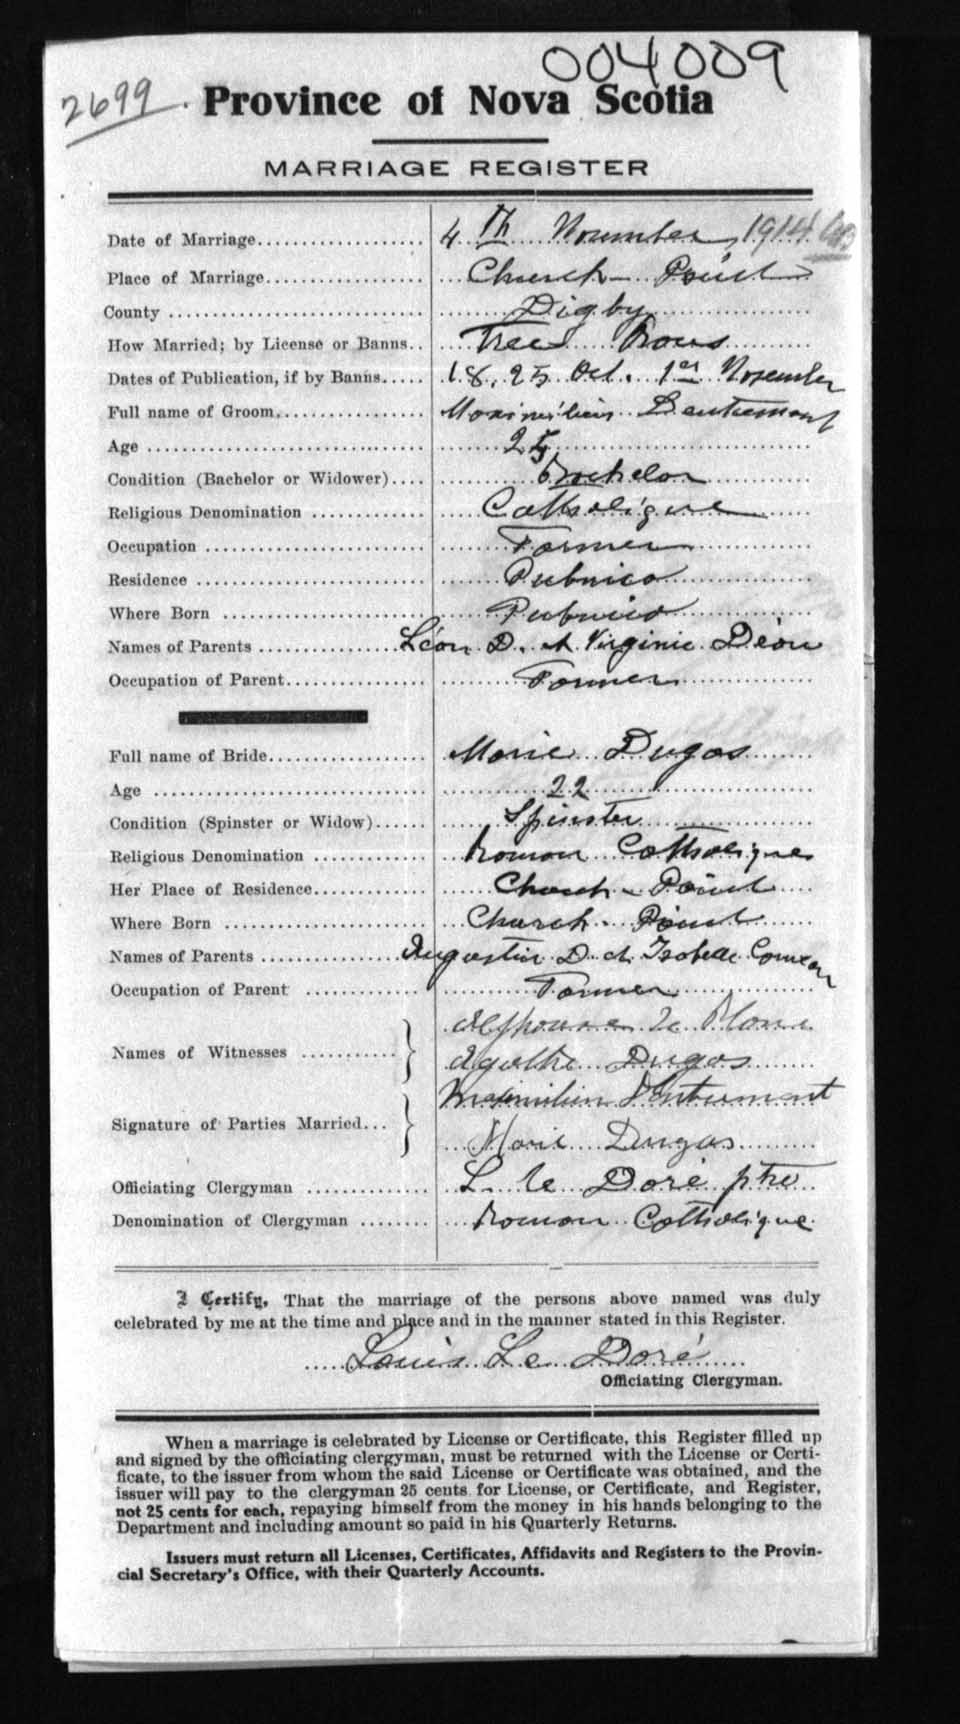 004009
2699.
Province of Nova Scotia
MARRIAGE REGISTER
Date of Marriage................... 4th November 1914
Place of Marriage.................. Church Point
County ............................ Digby
How Married; by License or Banns.. Three Bans
Dates of Publication, if by Banns..... 18, 25 Oct. 1er November
Full name of Groom................. Maximilien Dentremont
Age ............................... 25
Condition (Bachelor or Widower).... Bachelor
Religious Denomination ............ Catholique
Occupation ........................ Farmer
Residence ......................... Pubnico
Where Born ........................ Pubnico
Names of Parents .................. Léon D. et Virginie Déon
Occupation of Parent............... Farmer
Full name of Bride................. Marie Dugas
Age ............................... 22
Condition (Spinster or Widow)...... Spinster
Religious Denomination ............ Roman Catholique
Her Place of Residence............. Church-Point
Where Born ........................ Church-Point
Names of Parents .................. Augustin D. et Isabelle Comeau
Occupation of Parent .............. Farmer
Names of Witnesses ............ Alphonse Le Blanc
Agathe Dugas
Signature of Parties Married... Maximilien D'Entremont
Marie Dugas
Officiating Clergyman ............. L. Le Doré ptre
Denomination of Clergyman ........ Roman Catholique
I Certify, That the marriage of the persons above named was duly
celebrated by me at the time and place and in the manner stated in this Register.
Louis Le Doré
Officiating Clergyman.
When a marriage is celebrated by License or Certificate, this Register filled up
and signed by the officiating clergyman, must be returned with the License or Certi-
ficate, to the issuer from whom the said License or Certificate was obtained, and the
issuer will pay to the clergyman 25 cents for License, or Certificate, and Register,
not 25 cents for each, repaying himself from the money in his hands belonging to the
Department and including amount so paid in his Quarterly Returns.
Issuers must return all Licenses, Certificates, Affidavits and Registers to the Provin-
cial Secretary's Office, with their Quarterly Accounts.